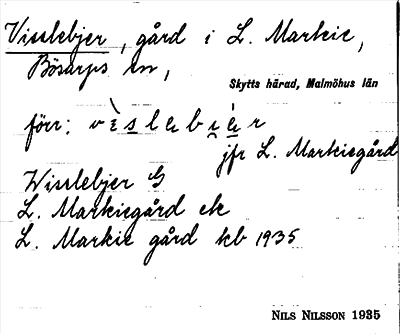 Visslebjer, gård i L. Markie,
Bösarps sn,
Skytts härad, Malmöhus län
förr: vìslebiér
jfr L. Markiegård
Wisslebjer G
L. Markiegård ek
L. Markie gård kb 1935
NILS NILSSON 1935